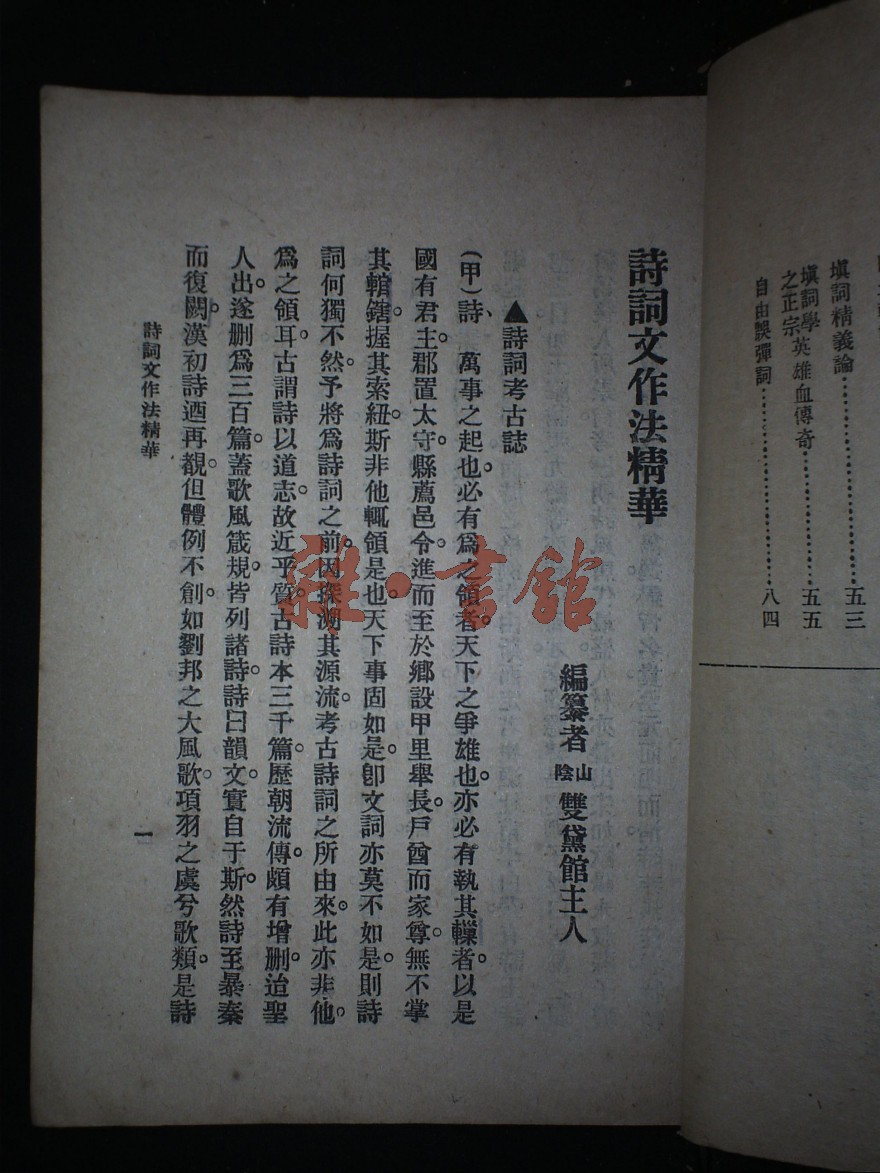 填詞精義論…………五三
填詞學英雄血傳奇…………五五
之正宗
自由誤彈詞…………八四
詩詞文作法精華
編纂者 山陰 雙黛館主人
▲詩詞考古誌
(甲)詩、萬事之起也。必有爲之領者。天下之爭雄也。亦必有執其韁者。以是
國有君主。郡置太守。縣薦邑令。進而至於鄉設甲里舉長。戶酋而家尊。無不掌
其轄。握其索紐。斯非他。輒領是也。天下事固如是。卽文詞亦莫不如是。則詩
詞何獨不然。予將爲詩詞之前。因探溯其源流。考古詩詞之所由來。此亦非他。
爲之領耳。古謂詩以道志。故近乎質。古詩本三千篇。歷朝流傳。頗有增删。迨聖
人出。遂删爲三百篇。蓋歌風箴規。皆列諸詩。詩曰韻文。實自于斯。然詩至暴秦
而復闕。漢初詩迺再覩。但體例不創。如劉邦之大風歌。項羽之虞兮歌類。是詩
詩詞文作法精華
一
雜·書館